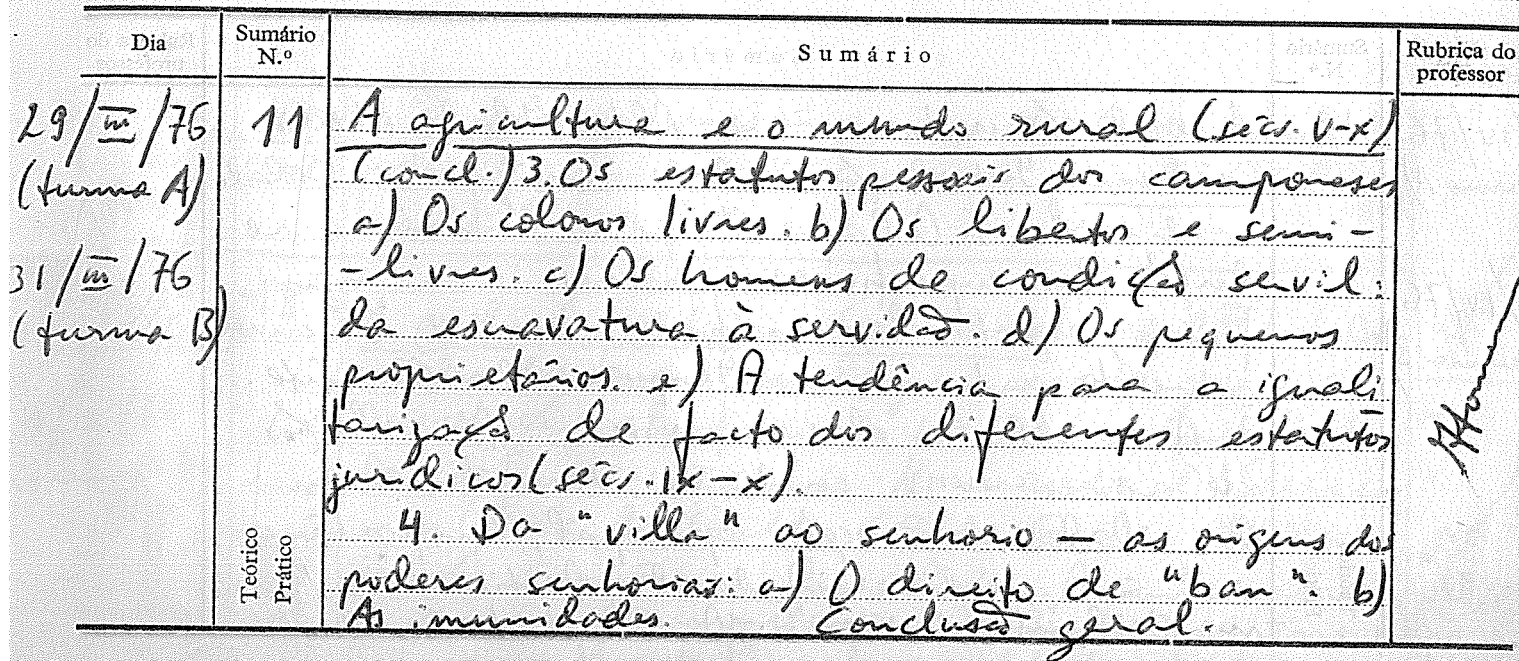 Dia
Sumário N.º
Sumário
Rubrica do professor
29/III/76
(turma A)
31/III/76
(turma B)
11
Teórico
Prático
A agricultura e o mundo rural (sécs. V-X)
(concl.) 3. Os estatutos pessoais dos camponeses
a) Os colonos livres. b) Os libertos e semi-
-livres. c) Os homens de condição servil:
da escravatura à servidão. d) Os pequenos
proprietários. e) A tendência para a iguali
tarização de facto dos diferentes estatutos
jurídicos (sécs. IX-X).
4. Da "villa" ao senhorio — as origens dos
poderes senhoriais: a) O direito de "ban". b)
As imunidades. Conclusão geral.